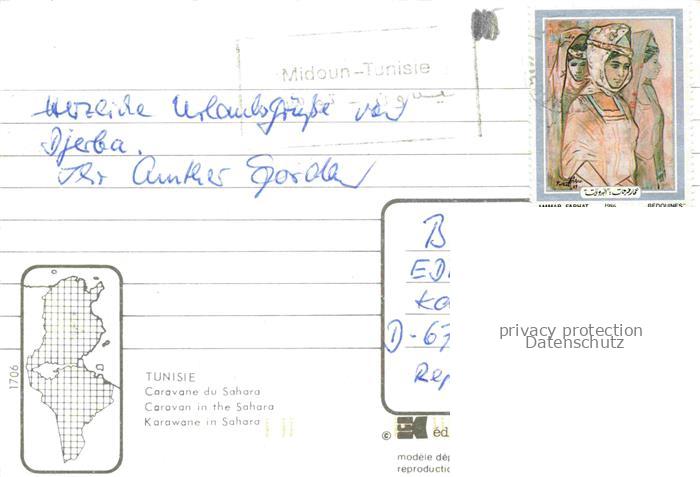 Midoun-Tunisie
Herzliche Urlaubsgrüße von
Djerba.
Ihr
AMMAR FARHAT 1986 BEDOUINES
B
ED
Ka
D-67
Rep
privacy protection
Datenschutz
1706
TUNISIE
Caravane du Sahara
Caravan in the Sahara
Karawane in Sahara
© éd
modèle dép
reproductio